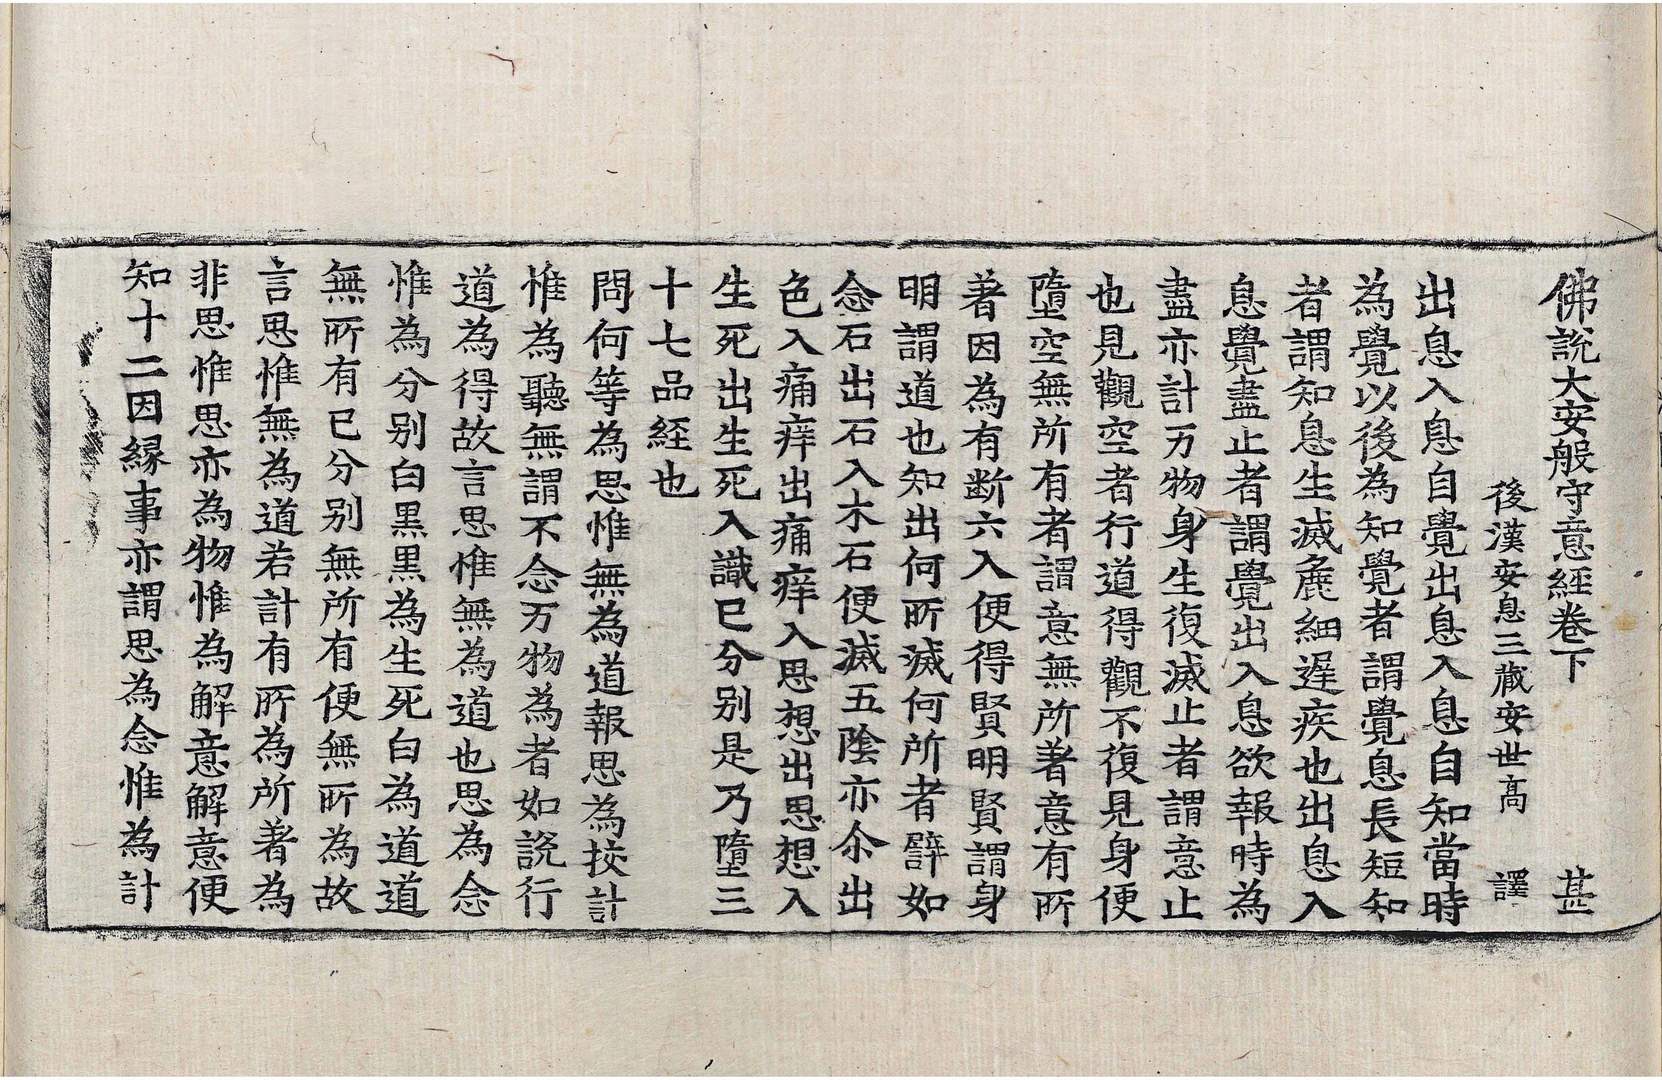 佛說大安般守意經卷下 甚
後漢安息三藏安世高 譯
出息入息自覺出息入息自知當時
為覺以後為知覺者謂覺息長短知
者謂知息生滅麁細遲疾也出息入
息覺盡止者謂覺出入息欲報時為
盡亦計万物身生復滅止者謂意止
也見觀空者行道得觀不復見身便
墮空無所有者謂意無所著意有所
著因為有断六入便得賢明賢謂身
明謂道也知出何所滅何所者譬如
念石出石入木石便滅五陰亦尒出
色入痛痒出痛痒入思想出思想入
生死出生死入識已分别是乃墮三
十七品経也
問何等為思惟無為道報思為挍計
惟為聽無謂不念万物為者如說行
道為得故言思惟無為道也思為念
惟為分别白黒黒為生死白為道道
無所有已分别無所有便無所為故
言思惟無為道若計有所為所著為
非思惟思亦為物惟為解意解意便
知十二因縁事亦謂思為念惟為計